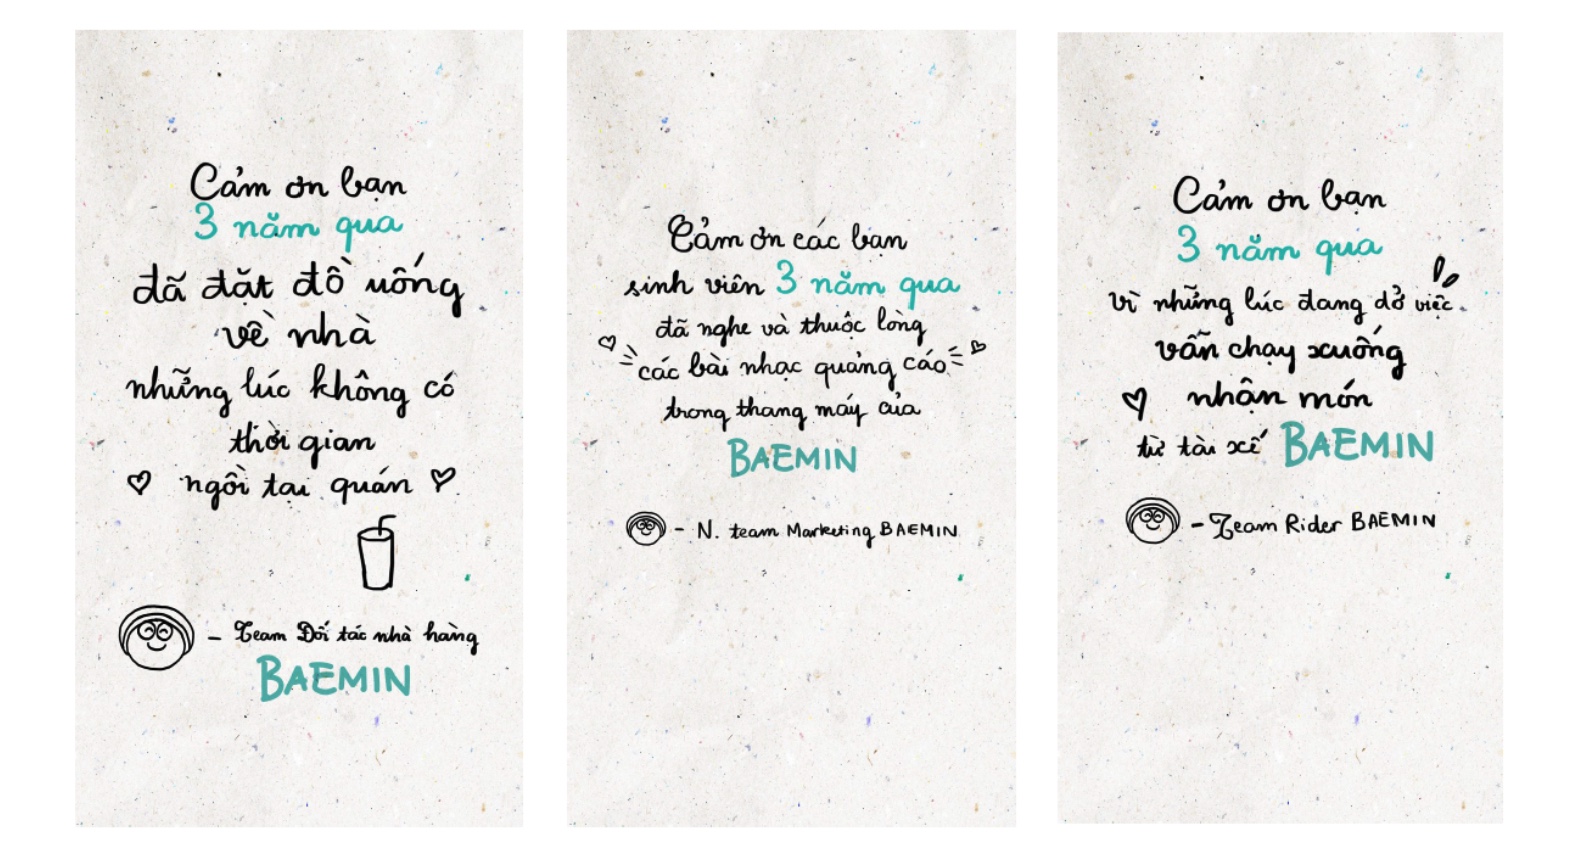 Cảm ơn bạn
3 năm qua
đã đặt đồ uống
về nhà
những lúc không có
thời gian
ngồi tại quán
- Team Đối tác nhà hàng
BAEMIN
Cảm ơn các bạn
sinh viên 3 năm qua
đã nghe và thuộc lòng
các bài nhạc quảng cáo
trong thang máy của
BAEMIN
- N. team Marketing BAEMIN
Cảm ơn bạn
3 năm qua
vì những lúc đang dở việc
vẫn chạy xuống
nhận món
từ tài xế BAEMIN
- Team Rider BAEMIN